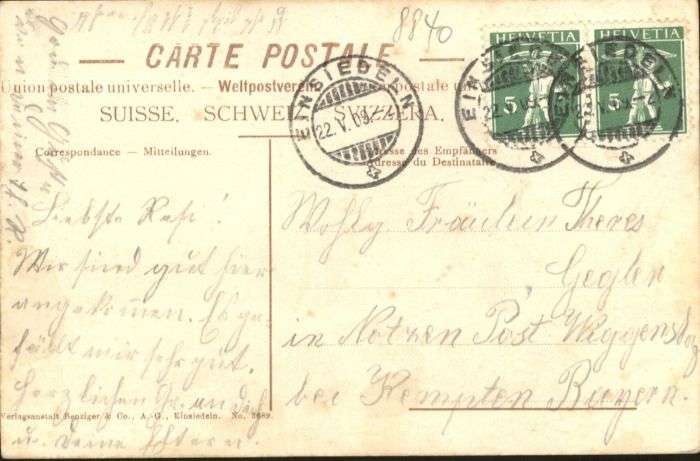 8840
CARTE POSTALE
Union postale universelle. – Weltpostverein postale universale.
SUISSE. SCHWEIZ. SVIZZERA.
HELVETIA
5
HELVETIA
5
EINSIEDELN
22.V.09.
EINSIEDELN
22.V.09
EINSIEDELN
Correspondance – Mitteilungen.
Adresse des Empfängers
Adresse du Destinataire
Liebste Resi!
Wir sind gut hier
angekommen. Es ge-
fällt mir sehr gut.
Herzlichen Gr. an dich
u. deine Eltern.
Wohlg. Fräulein Theres
Gegler
in Notzen Post Wiggensb
bei Kempten Bayern.
Verlagsanstalt Benziger & Co., A.-G., Einsiedeln. No. 3689.